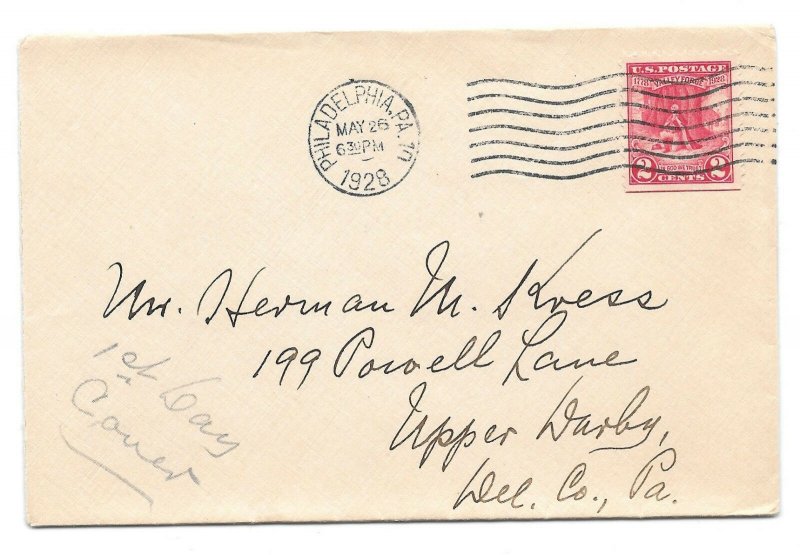 PHILADELPHIA, PA. 10
MAY 26
630 PM
1928
U.S. POSTAGE
1778 VALLEY FORGE 1928
IN GOD WE TRUST
2 CENTS 2
Mr. Herman M. Kress
199 Powell Lane
Upper Darby,
Del. Co., Pa.
1st Day
Cover